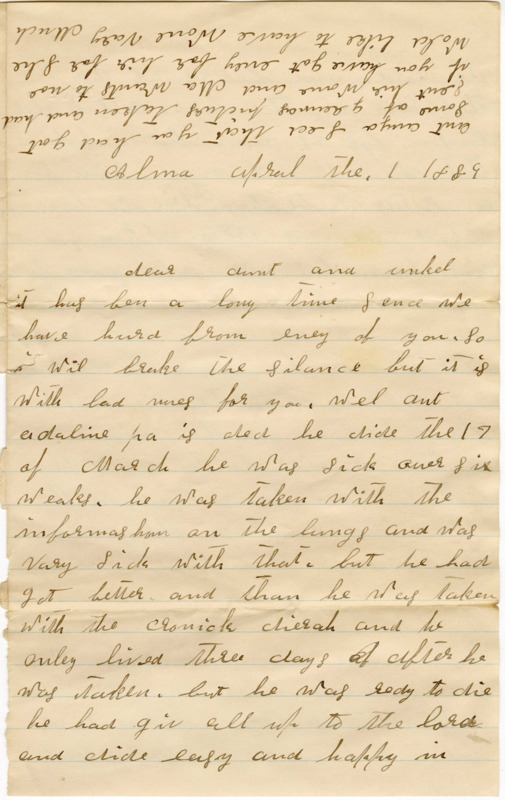 ant Sea that you had got
Some of pictures taken and had
Sent hir wone and Ma wants to noe
if you have got eney for hir for She
Wold like to have wone Vary Much
Alma apral the. 1 188
dear aunt and unkel
it has ben a long time sence we
have hurd from eney of you. So
i wil brake the silance but it is
with bad nues for you. wel ant
adaline pa is ded he dide the 17
of March he was sick over six
weaks. he was taken with the
informashon on the lungs and was
vary sick with that. but he had
got better. and than he was taken
with the cronick dierah and he
onley lived three days after he
was taken. but he was redy to die
he had giv all up to the lord
and dide easy and happy in